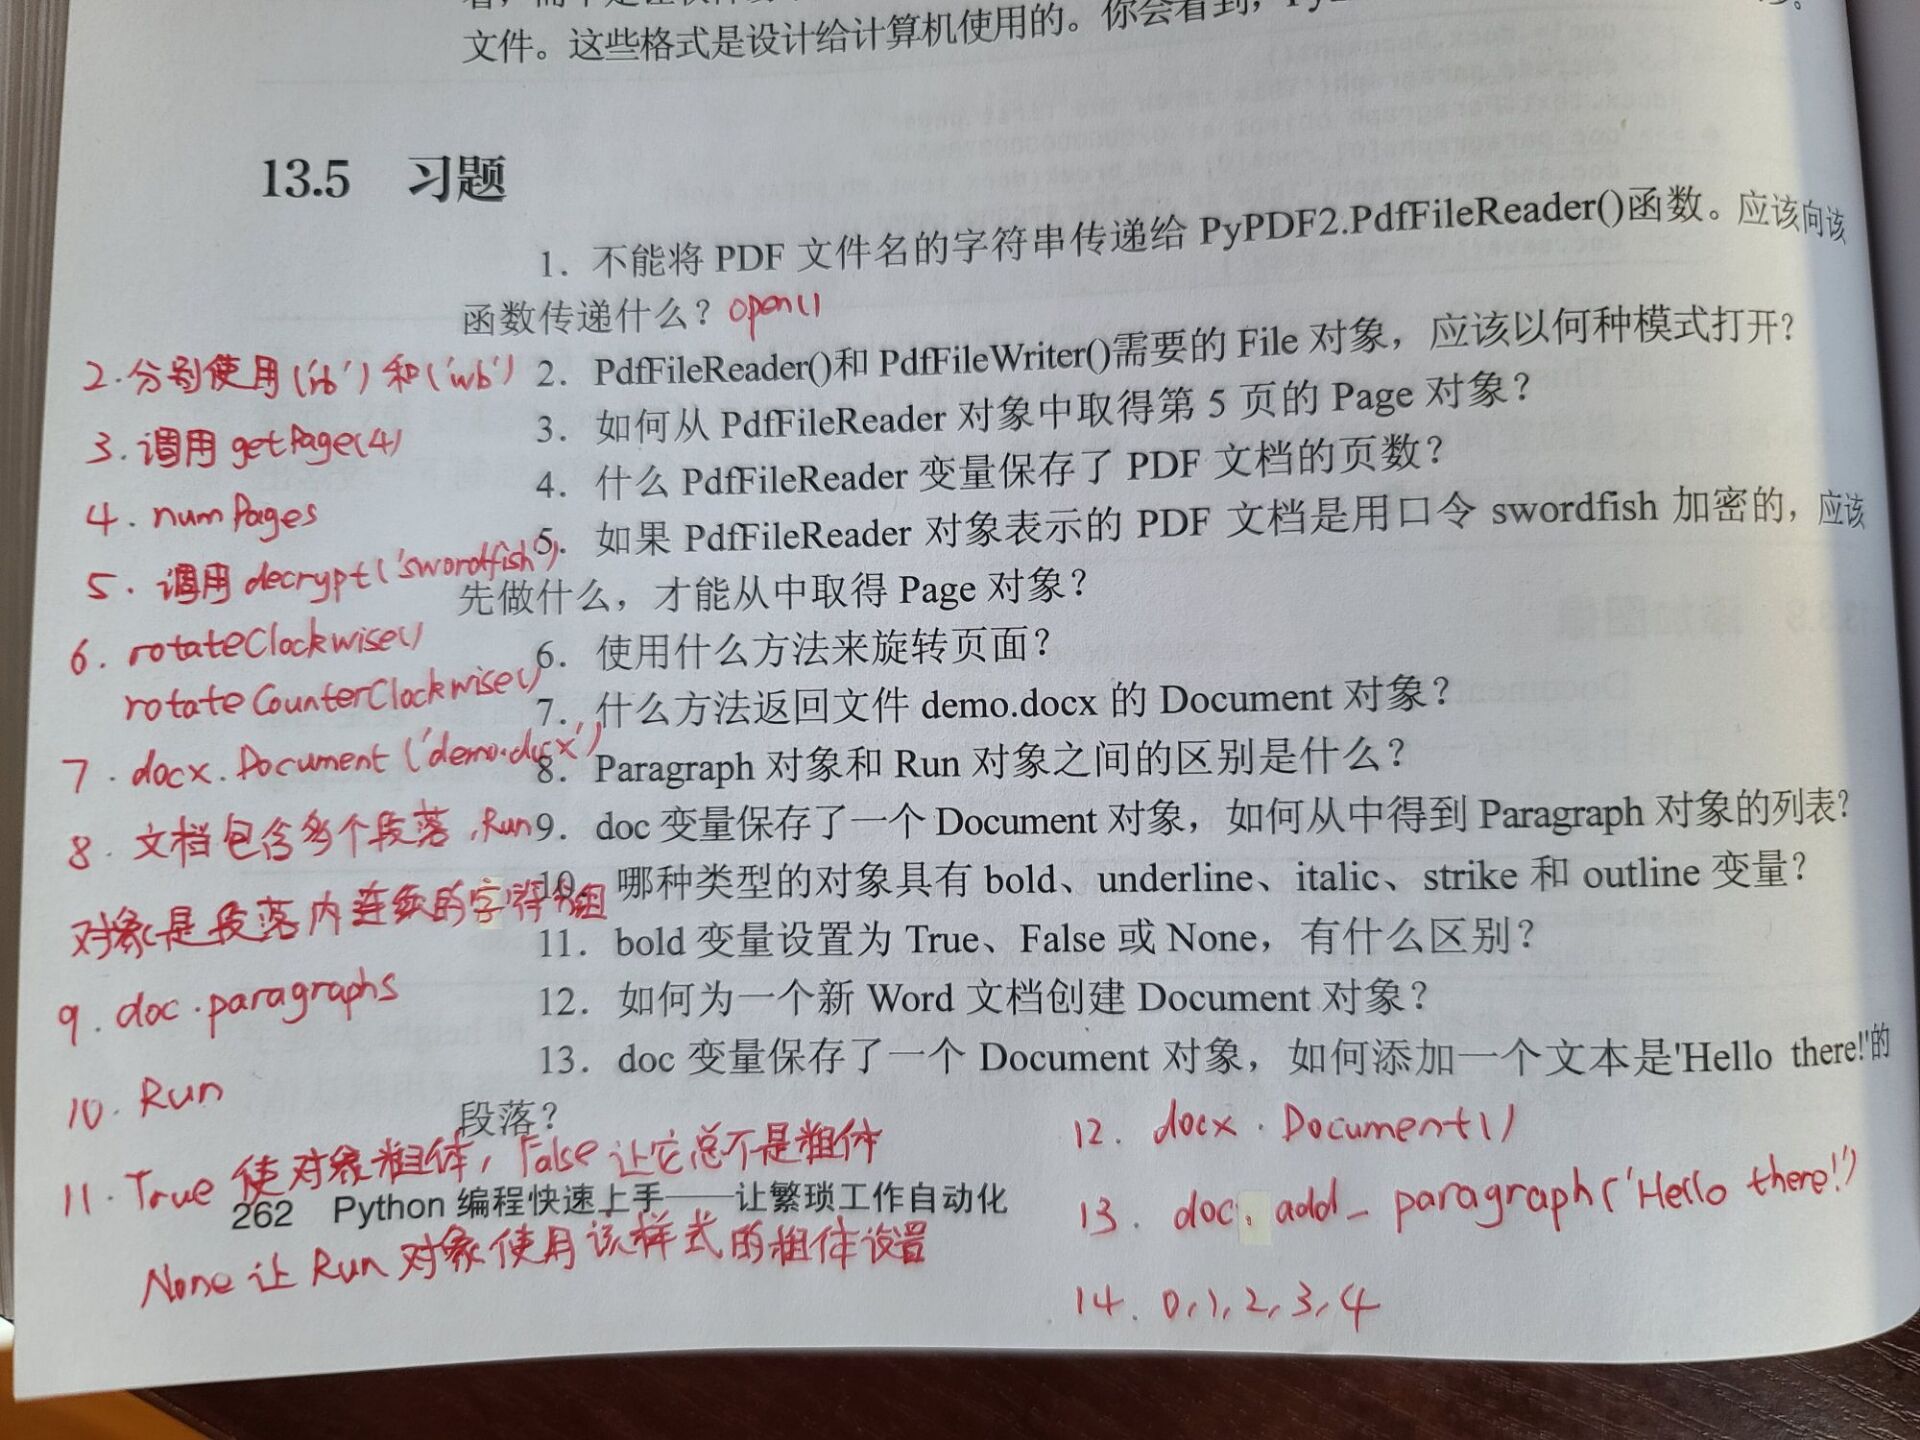 文件。这些格式是设计给计算机使用的。你会看到，
13.5 习题
1．不能将 PDF 文件名的字符串传递给 PyPDF2.PdfFileReader()函数。应该向该
函数传递什么？open()
2．PdfFileReader()和 PdfFileWriter()需要的 File 对象，应该以何种模式打开？
3．如何从 PdfFileReader 对象中取得第 5 页的 Page 对象？
4．什么 PdfFileReader 变量保存了 PDF 文档的页数？
5．如果 PdfFileReader 对象表示的 PDF 文档是用口令 swordfish 加密的，应该
先做什么，才能从中取得 Page 对象？
6．使用什么方法来旋转页面？
7．什么方法返回文件 demo.docx 的 Document 对象？
8．Paragraph 对象和 Run 对象之间的区别是什么？
9．doc 变量保存了一个 Document 对象，如何从中得到 Paragraph 对象的列表？
10．哪种类型的对象具有 bold、underline、italic、strike 和 outline 变量？
11．bold 变量设置为 True、False 或 None，有什么区别？
12．如何为一个新 Word 文档创建 Document 对象？
13．doc 变量保存了一个 Document 对象，如何添加一个文本是'Hello there!'的
段落？
2.分别使用('rb')和('wb')
3.调用getPage(4)
4.numPages
5.调用decrypt('swordfish')
6.rotateClockwise()
rotateCounterClockwise()
7.docx.Document('demo.docx')
8.文档包含多个段落,Run
对象是段落内连续的字符组
9.doc.paragraphs
10.Run
11.True 使对象粗体,False让它总不是粗体
None让Run对象使用该样式的粗体设置
12.docx.Document()
13.doc.add_paragraph('Hello there!')
14.0,1,2,3,4
262 Python 编程快速上手——让繁琐工作自动化